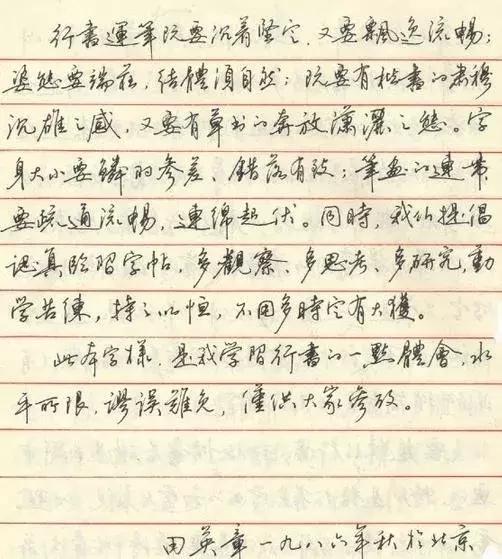 行書運筆既要沉着堅定，又要飄逸流暢；
姿態要端莊，結體須自然；既要有楷書的肅穆
沉雄之感，又要有草书的奔放瀟灑之態。字
身大小要鳞的参差，錯落有致；筆画的連帶，
要疏通流暢，連綿起伏。同時，我们提倡
认真臨習字帖，多觀察、多思考、多研究，勤
学苦練，持之以恒，不用多時定有大獲。
此本字樣，是我学習行書的一點體會，水
平所限，謬誤難免，僅供大家参攷。
田英章一九八六年秋於北京